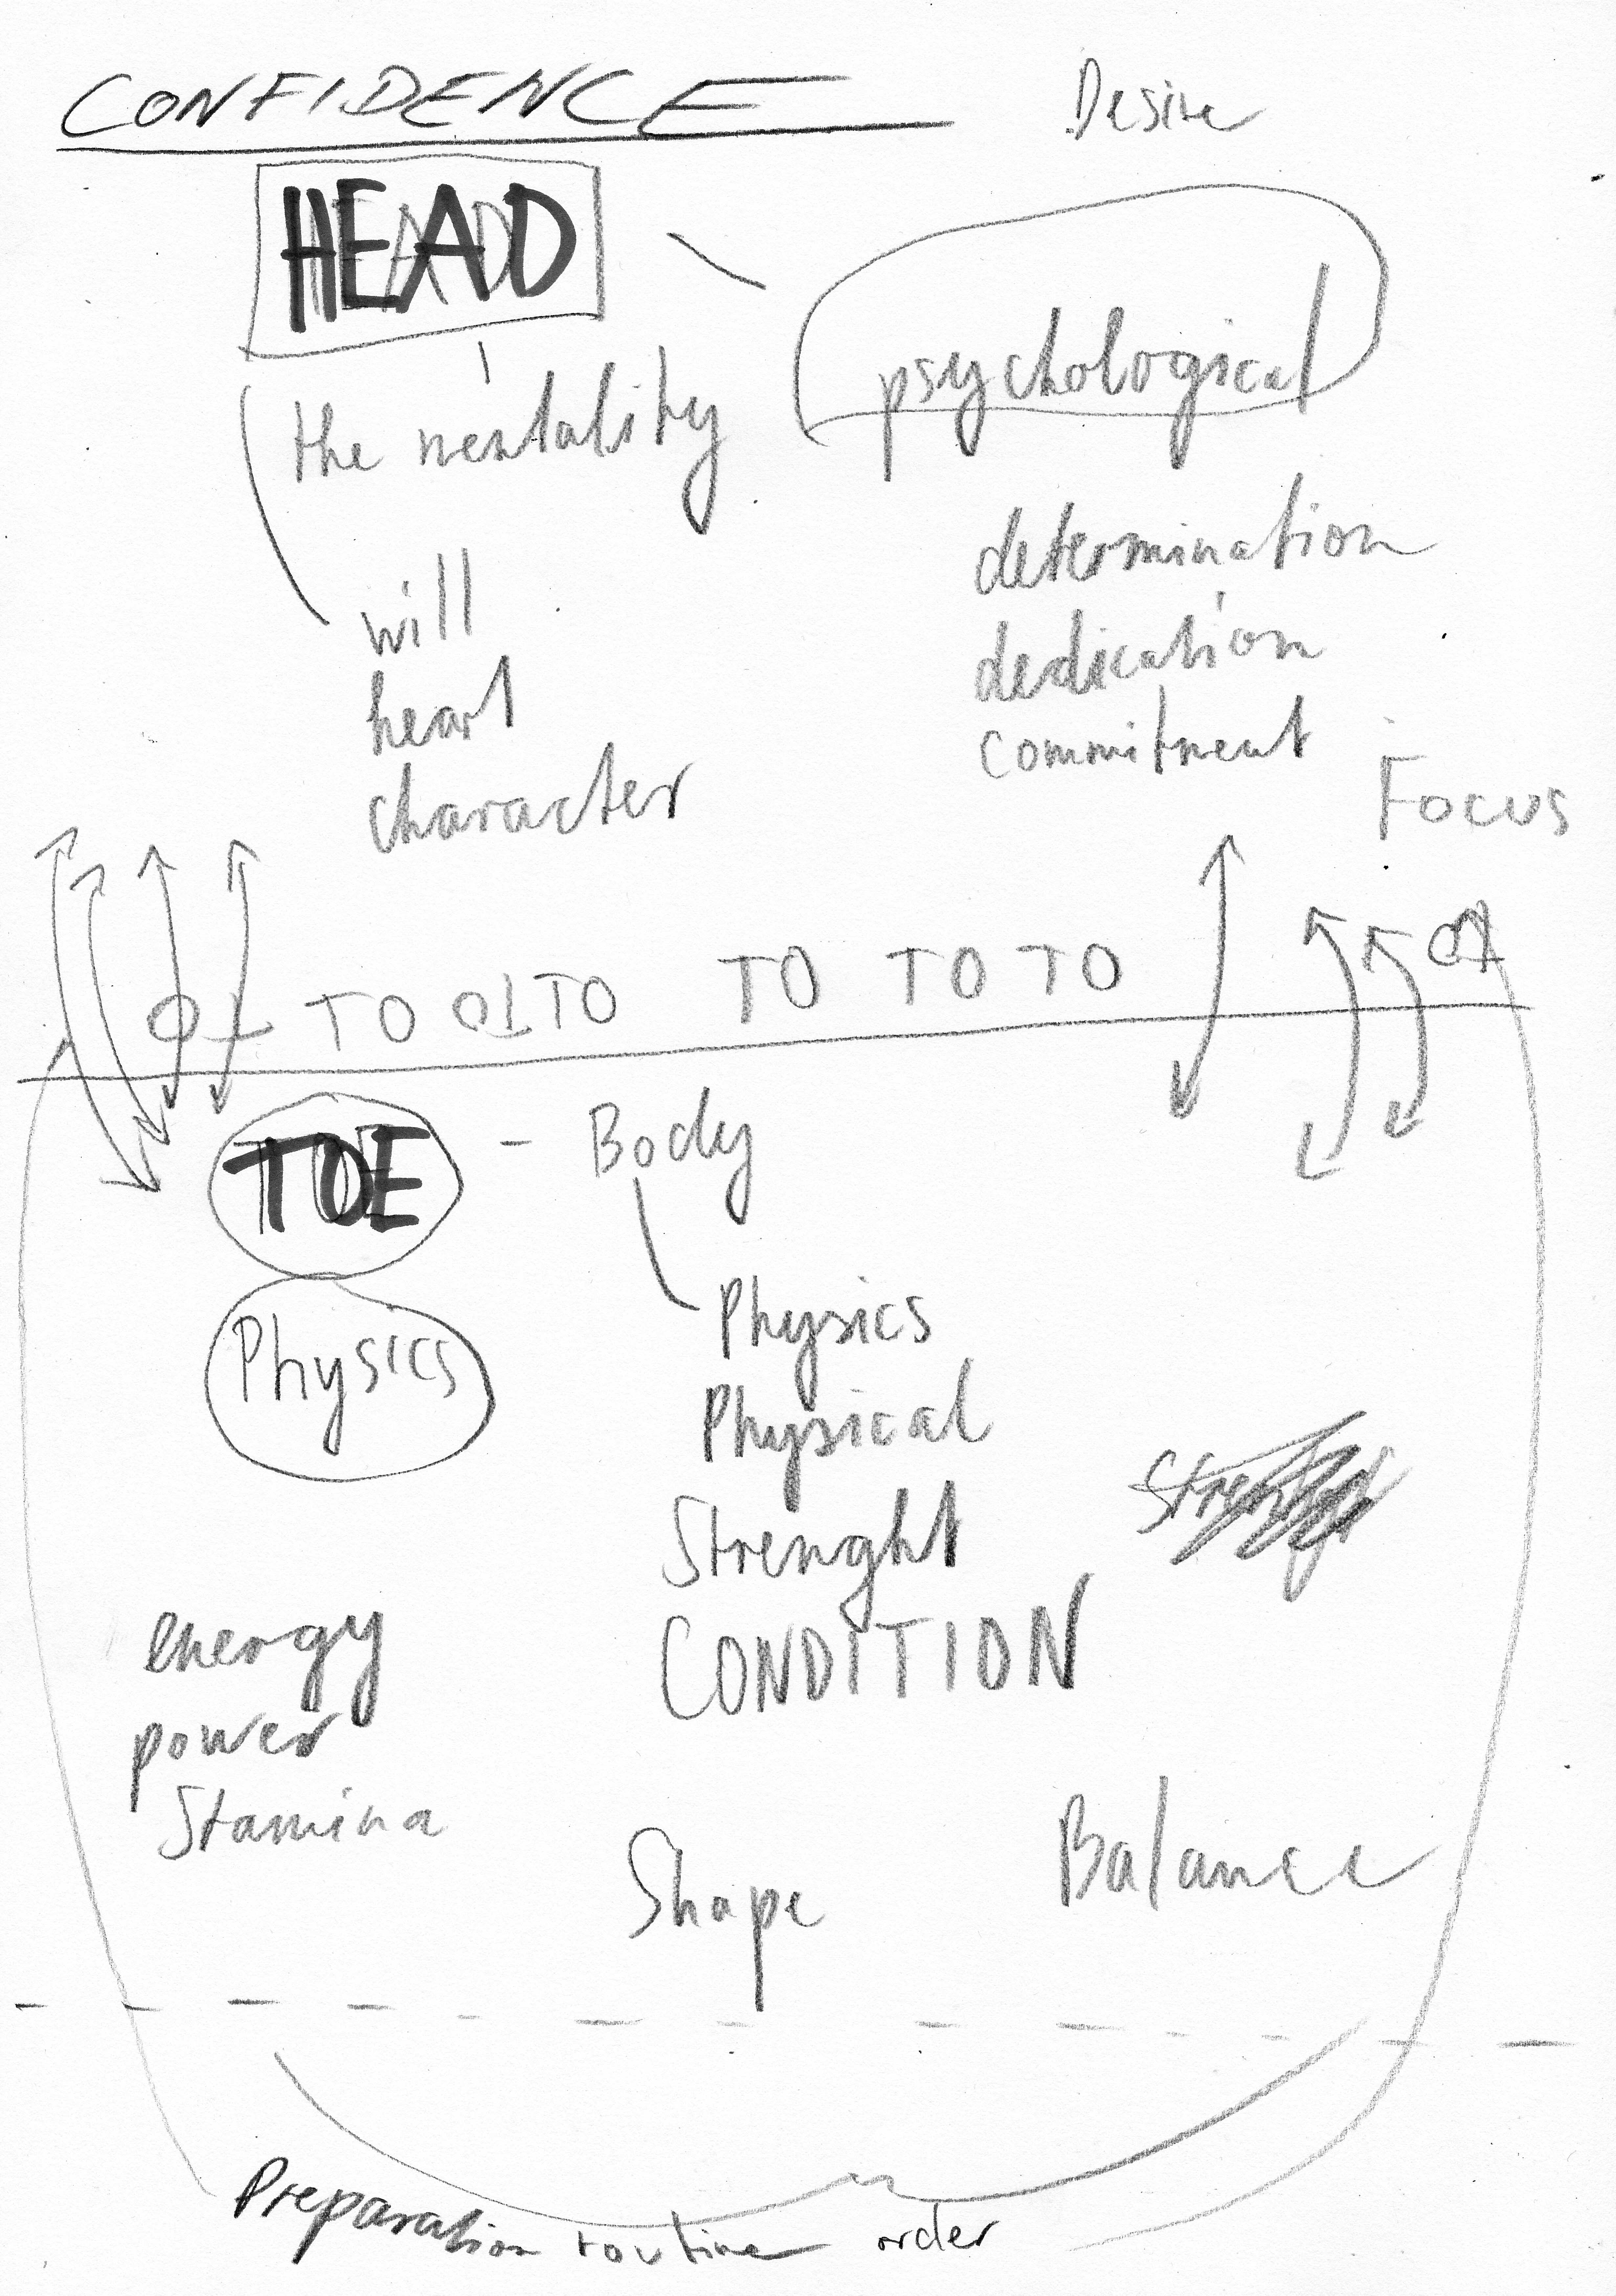 CONFIDENCE Desire
HEAD
psychological
the mentality
determination
will
dedication
heart
commitment
character
Focus
TO
TO TO TO TO TO TO
TOE - Body
Physics
Physics
Physical
Strenght
energy
CONDITION
power
Stamina
Balance
Shape
Preparation routine order